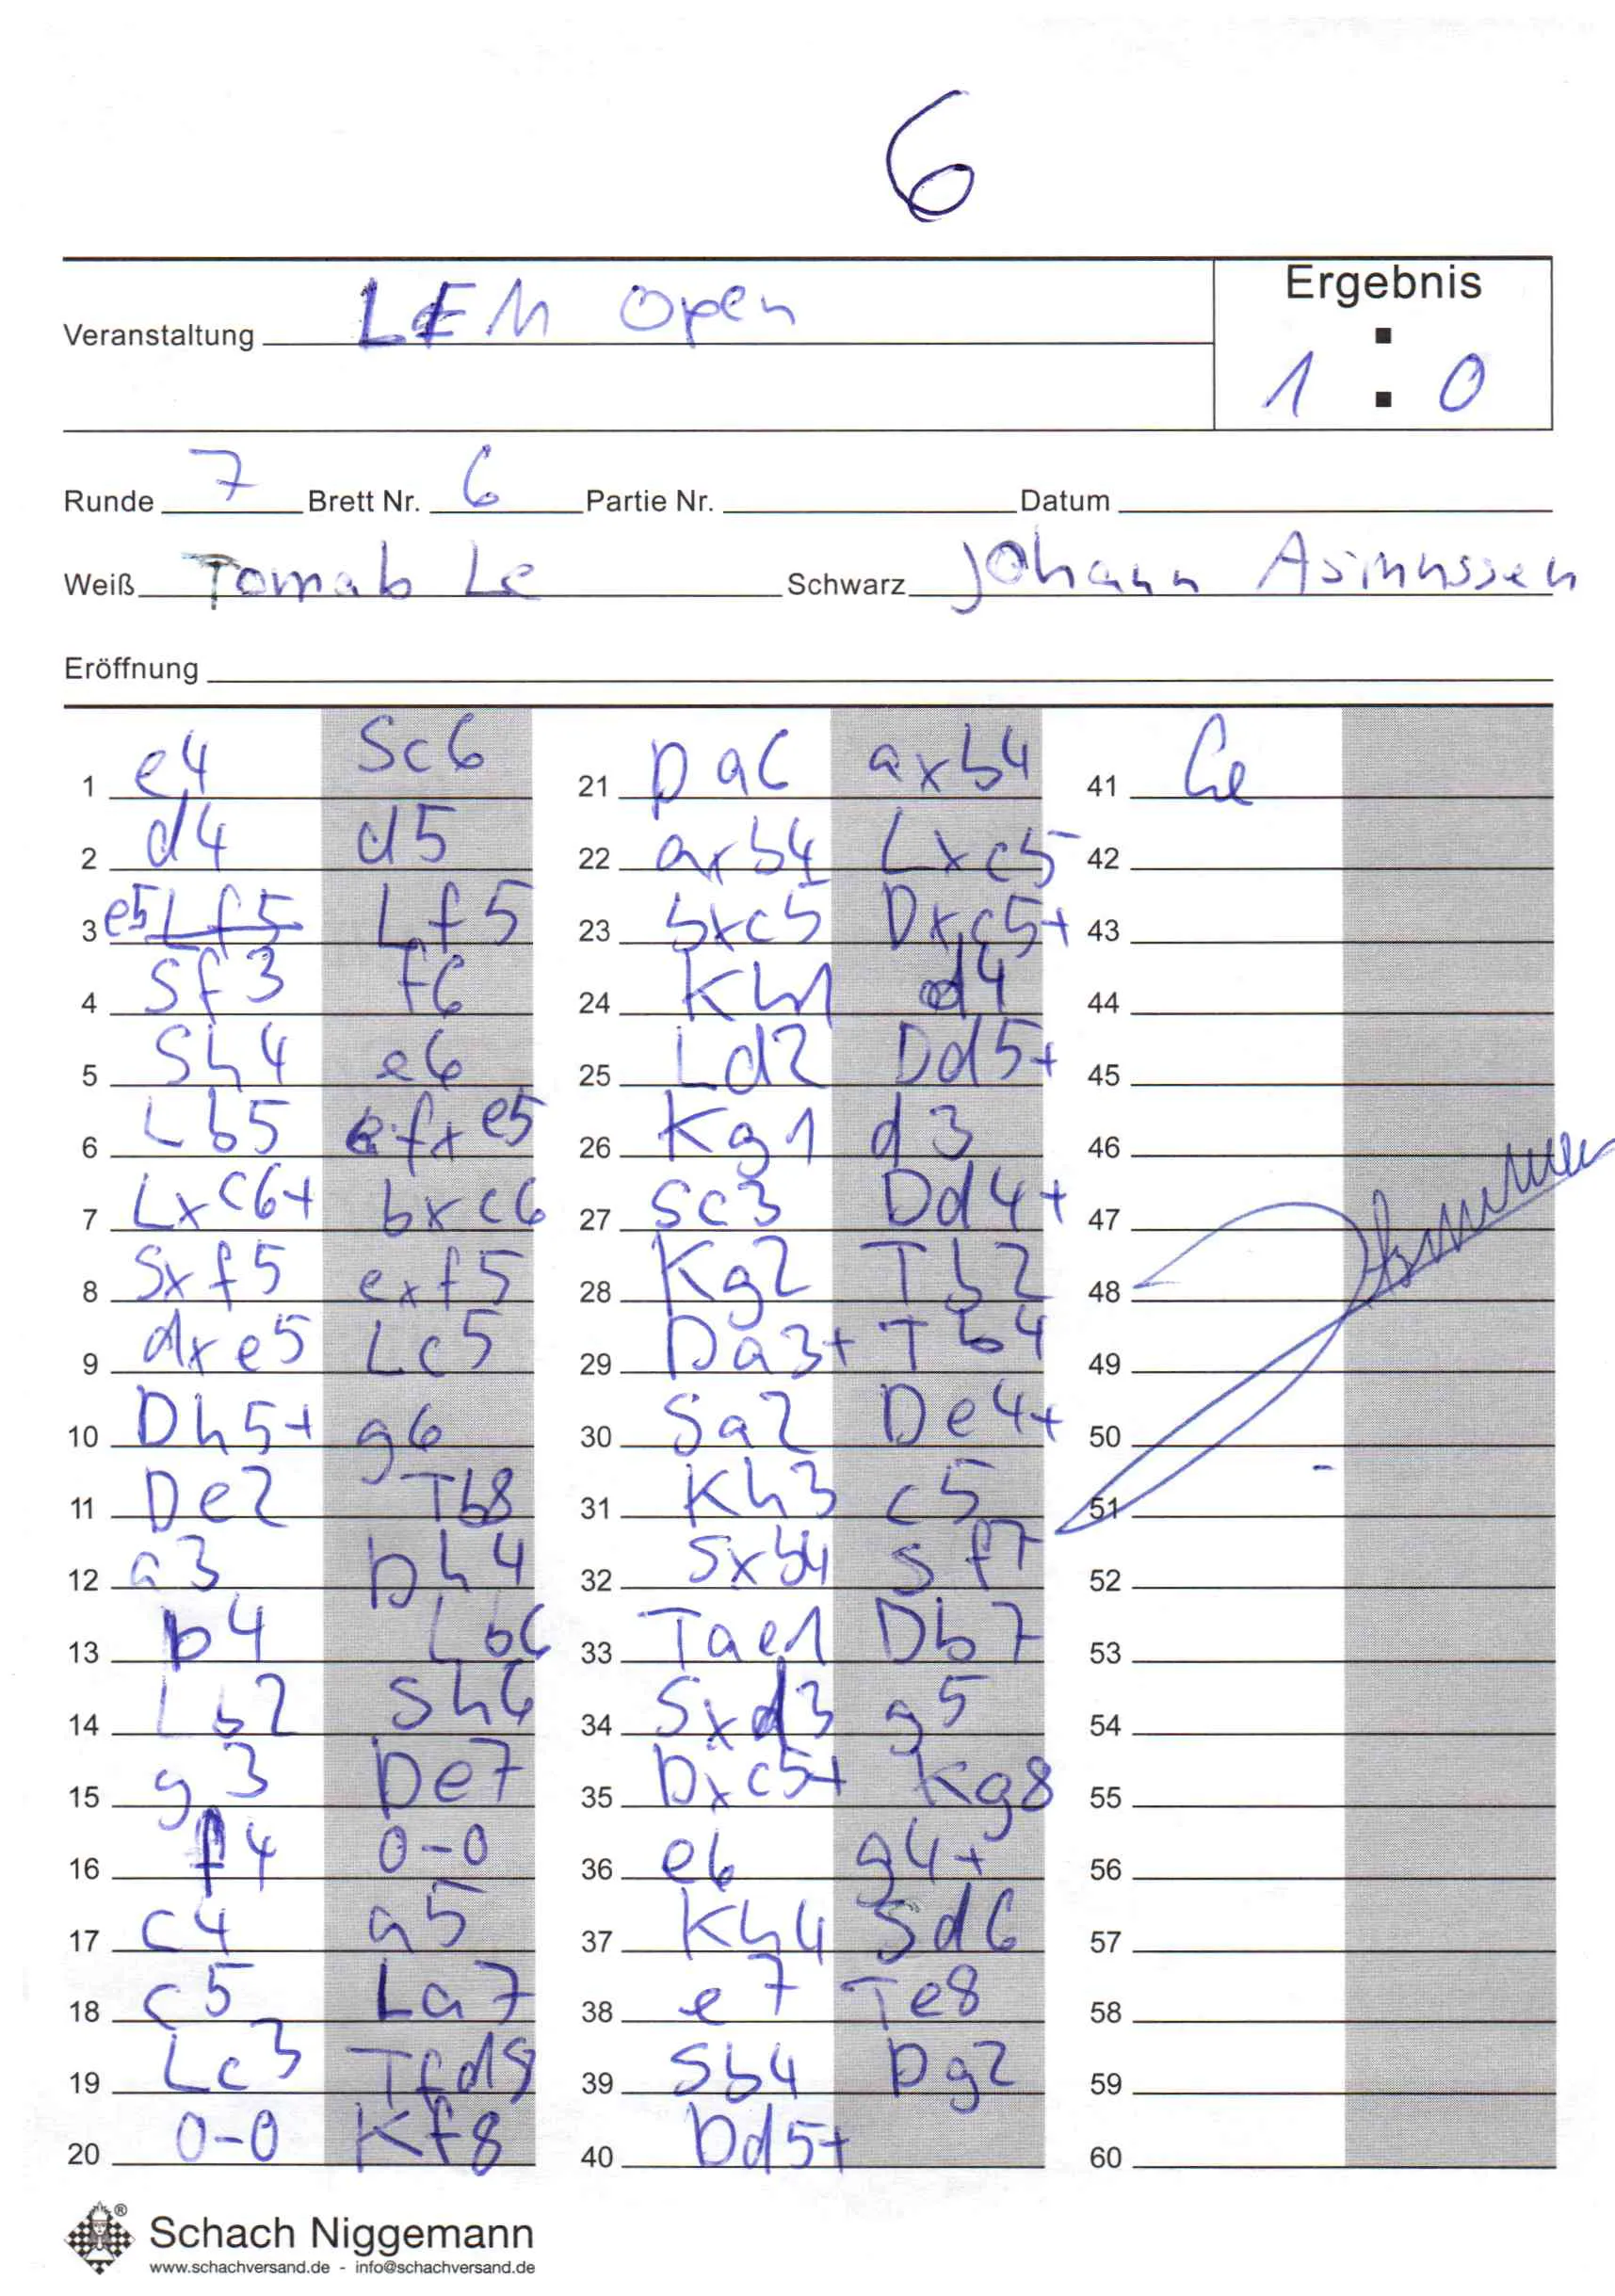 6
Ergebnis
Veranstaltung LEM Open
1 : 0
Runde 7 Brett Nr. 6 Partie Nr. Datum
Weiß Tomab Le Schwarz Johann Asmussen
Eröffnung
1 e4 Sc6
2 d4 d5
3 e5 Lf5 Lf5
4 Sf3 f6
5 Sh4 e6
6 Lb5 fxe5
7 Lxc6+ bxc6
8 Sxf5 exf5
9 dxe5 Lc5
10 Dh5+ g6
11 De2 Tb8
12 a3 Dh4
13 b4 Lb6
14 Lb2 Sh6
15 g3 De7
16 f4 0-0
17 c4 a5
18 c5 La7
19 Lc3 Tfd8
20 0-0 Kf8
21 Da6 axb4
22 axb4 Lxc5
23 bxc5 Dxc5+
24 Kh1 d4
25 Ld2 Dd5+
26 Kg1 d3
27 Sc3 Dd4+
28 Kg2 Tb2
29 Da3+ Tb4
30 Sa2 De4+
31 Kh3 c5
32 Sxb4 Sf7
33 Tae1 Db7
34 Sxd3 g5
35 Dxc5+ Kg8
36 e6 g4+
37 Kh4 Sd6
38 e7 Te8
39 Sb4 Dg2
40 Dd5+
41 Le
42
43
44
45
46
47
48
49
50
51
52
53
54
55
56
57
58
59
60
Schach Niggemann ®
www.schachversand.de - info@schachversand.de